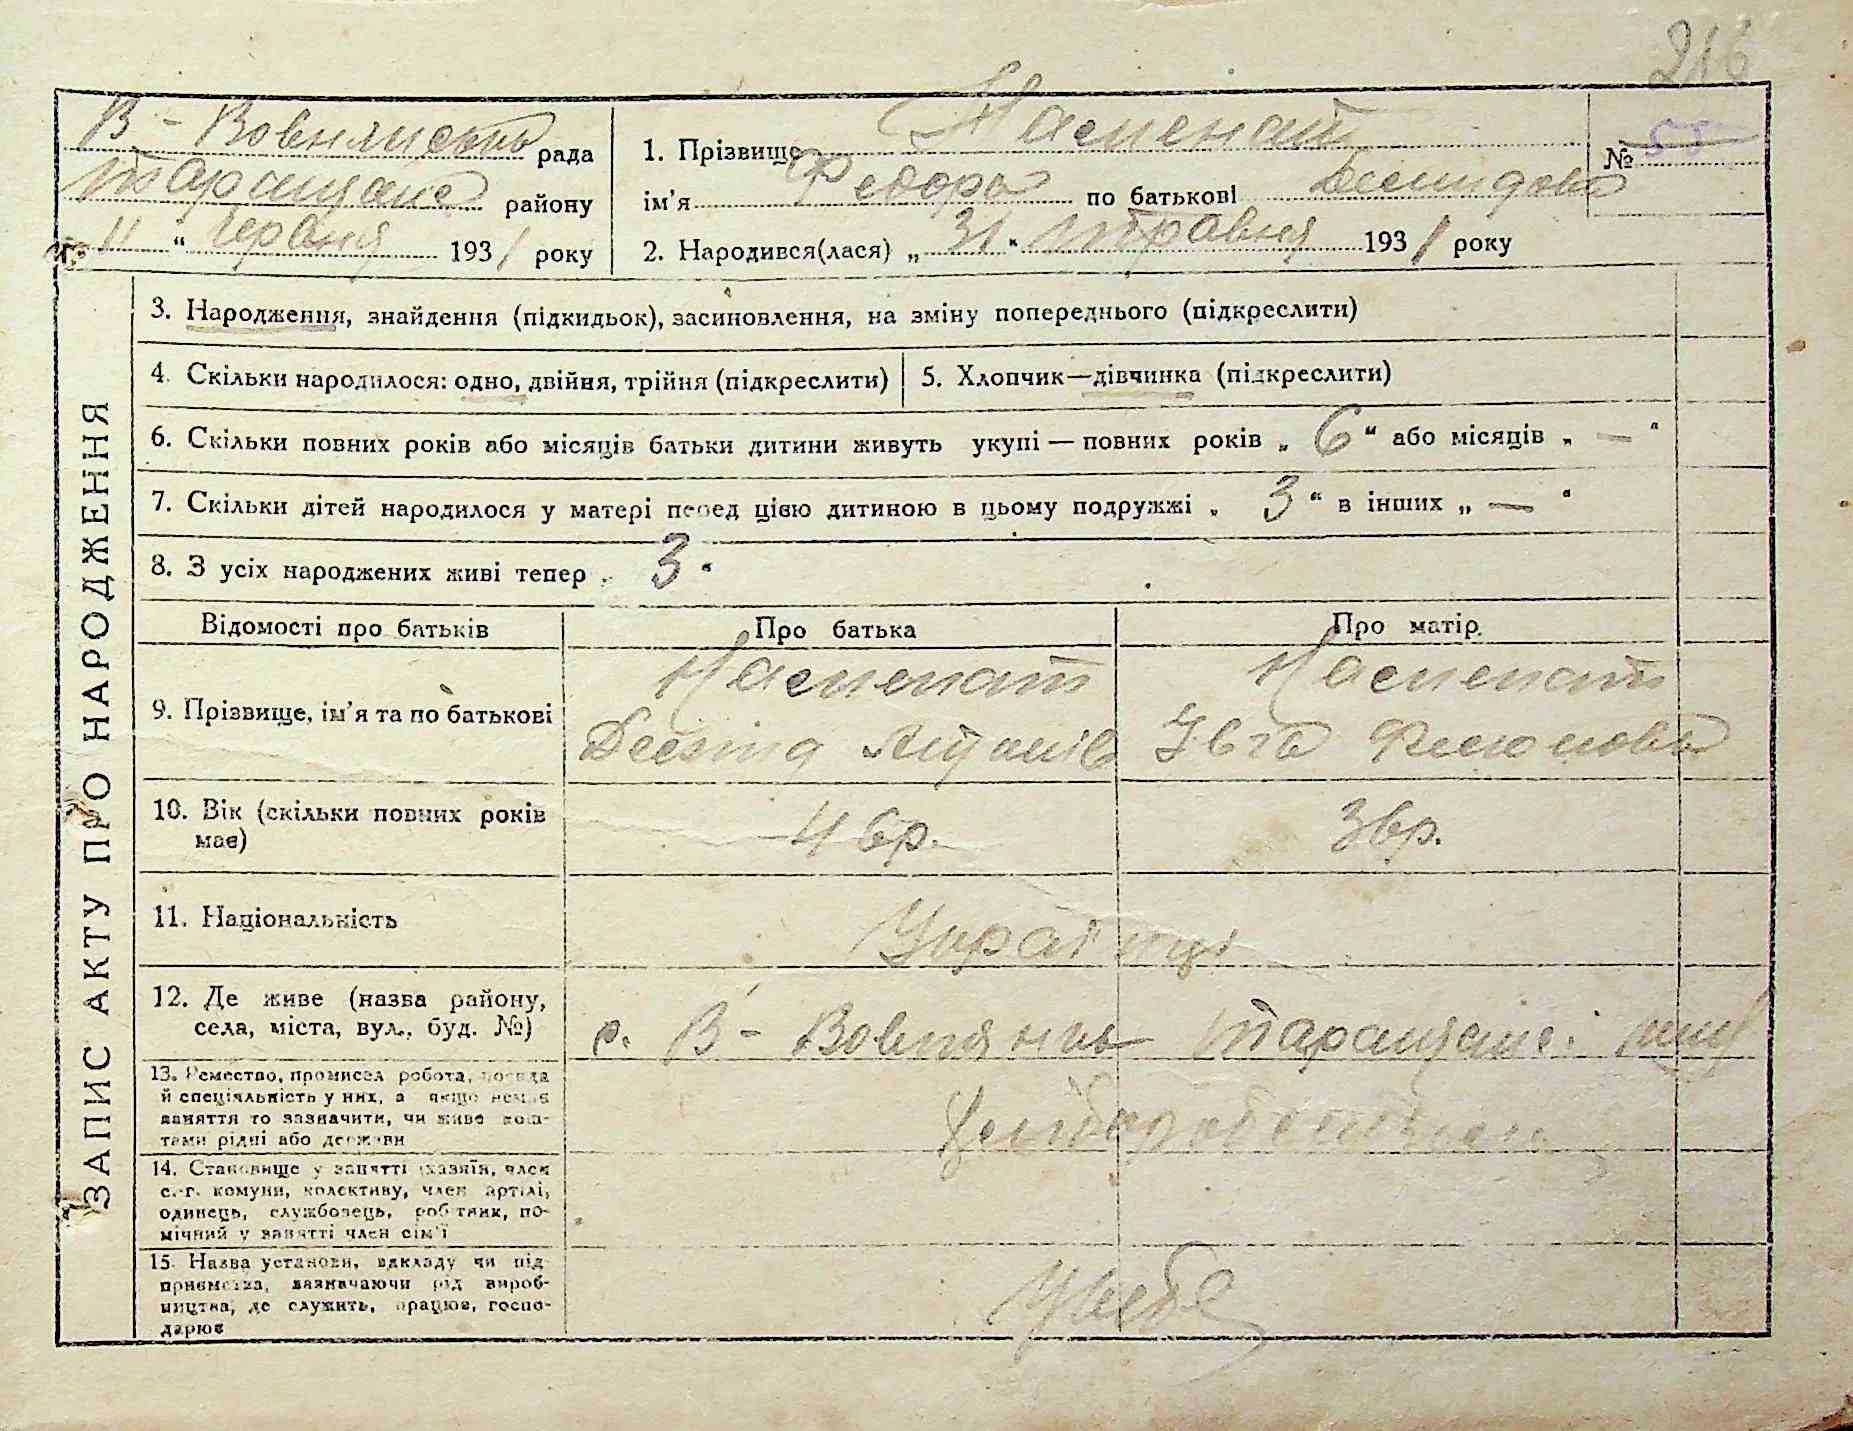 216
В - Вовнянсько рада
Таращансь району
11 " Червня 1931 року
1. Прізвище
№ 55
ім'я Федора по батькові Демидова
2. Народився(лася) „ 31 " Травня 1931 року
ЗАПИС АКТУ ПРО НАРОДЖЕННЯ
3. Народження, знайдення (підкидьок), засиновлення, на зміну попереднього (підкреслити)
4. Скільки народилося: одно, двійня, трійня (підкреслити)
5. Хлопчик—дівчинка (підкреслити)
6. Скільки повних років або місяців батьки дитини живуть укупі — повних років „ 6 " або місяців „ — "
7. Скільки дітей народилося у матері перед цією дитиною в цьому подружжі „ 3 " в інших „ — "
8. З усіх народжених живі тепер „ 3 "
Відомості про батьків
Про батька
Про матір
9. Прізвище, ім'я та по батькові
Демид
Ївга
10. Вік (скільки повних років має)
р.
р.
11. Національність
Українці
12. Де живе (назва району, села, міста, вул., буд. №)
с. В - Вовнянка Таращанс.
13. Ремество, промисел робота, посада
й спеціяльність у них, а якщо немає
заняття то зазначити, чи живе кош-
тами рідні або держави
14. Становище у занятті (хазяїн, член
с.-г. комуни, колективу, член артілі,
одинець, службовець, робітник, по-
мічний у занятті член сім'ї
15. Назва установи, закладу чи під-
приємства, зазначаючи рід вироб-
ництва, де служить, працює, госпо-
дарює
У себе